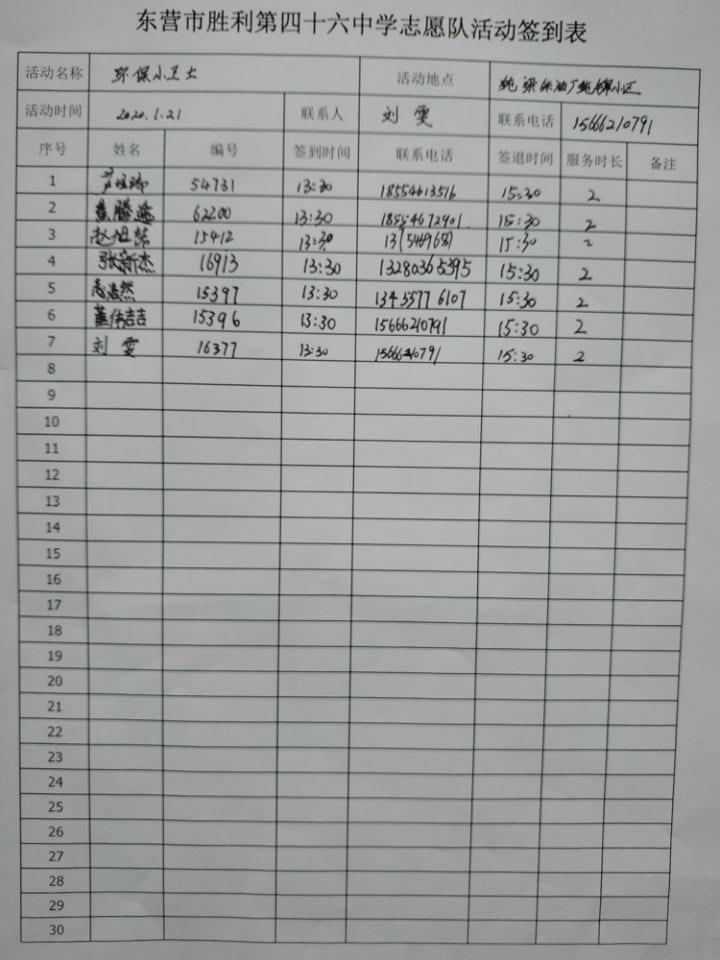 东营市胜利第四十六中学志愿队活动签到表
活动名称 环保小卫士 活动地点 纯梁采油厂纯梁小区
活动时间 2020.1.21 联系人 刘雯 联系电话 15666210791
序号 姓名 编号 签到时间 联系电话 签退时间 服务时长 备注
1 54731 13:30 18554613516 15:30 2
2 62200 13:30 18554672901 15:30 2
3 赵旭荣 15412 13:30 15:30 2
4 张新杰 16913 13:30 13280365395 15:30 2
5 浩然 15397 13:30 13455776107 15:30 2
6 董伟吉吉 15396 13:30 15666210791 15:30 2
7 刘雯 16377 13:30 15666210791 15:30 2
8
9
10
11
12
13
14
15
16
17
18
19
20
21
22
23
24
25
26
27
28
29
30